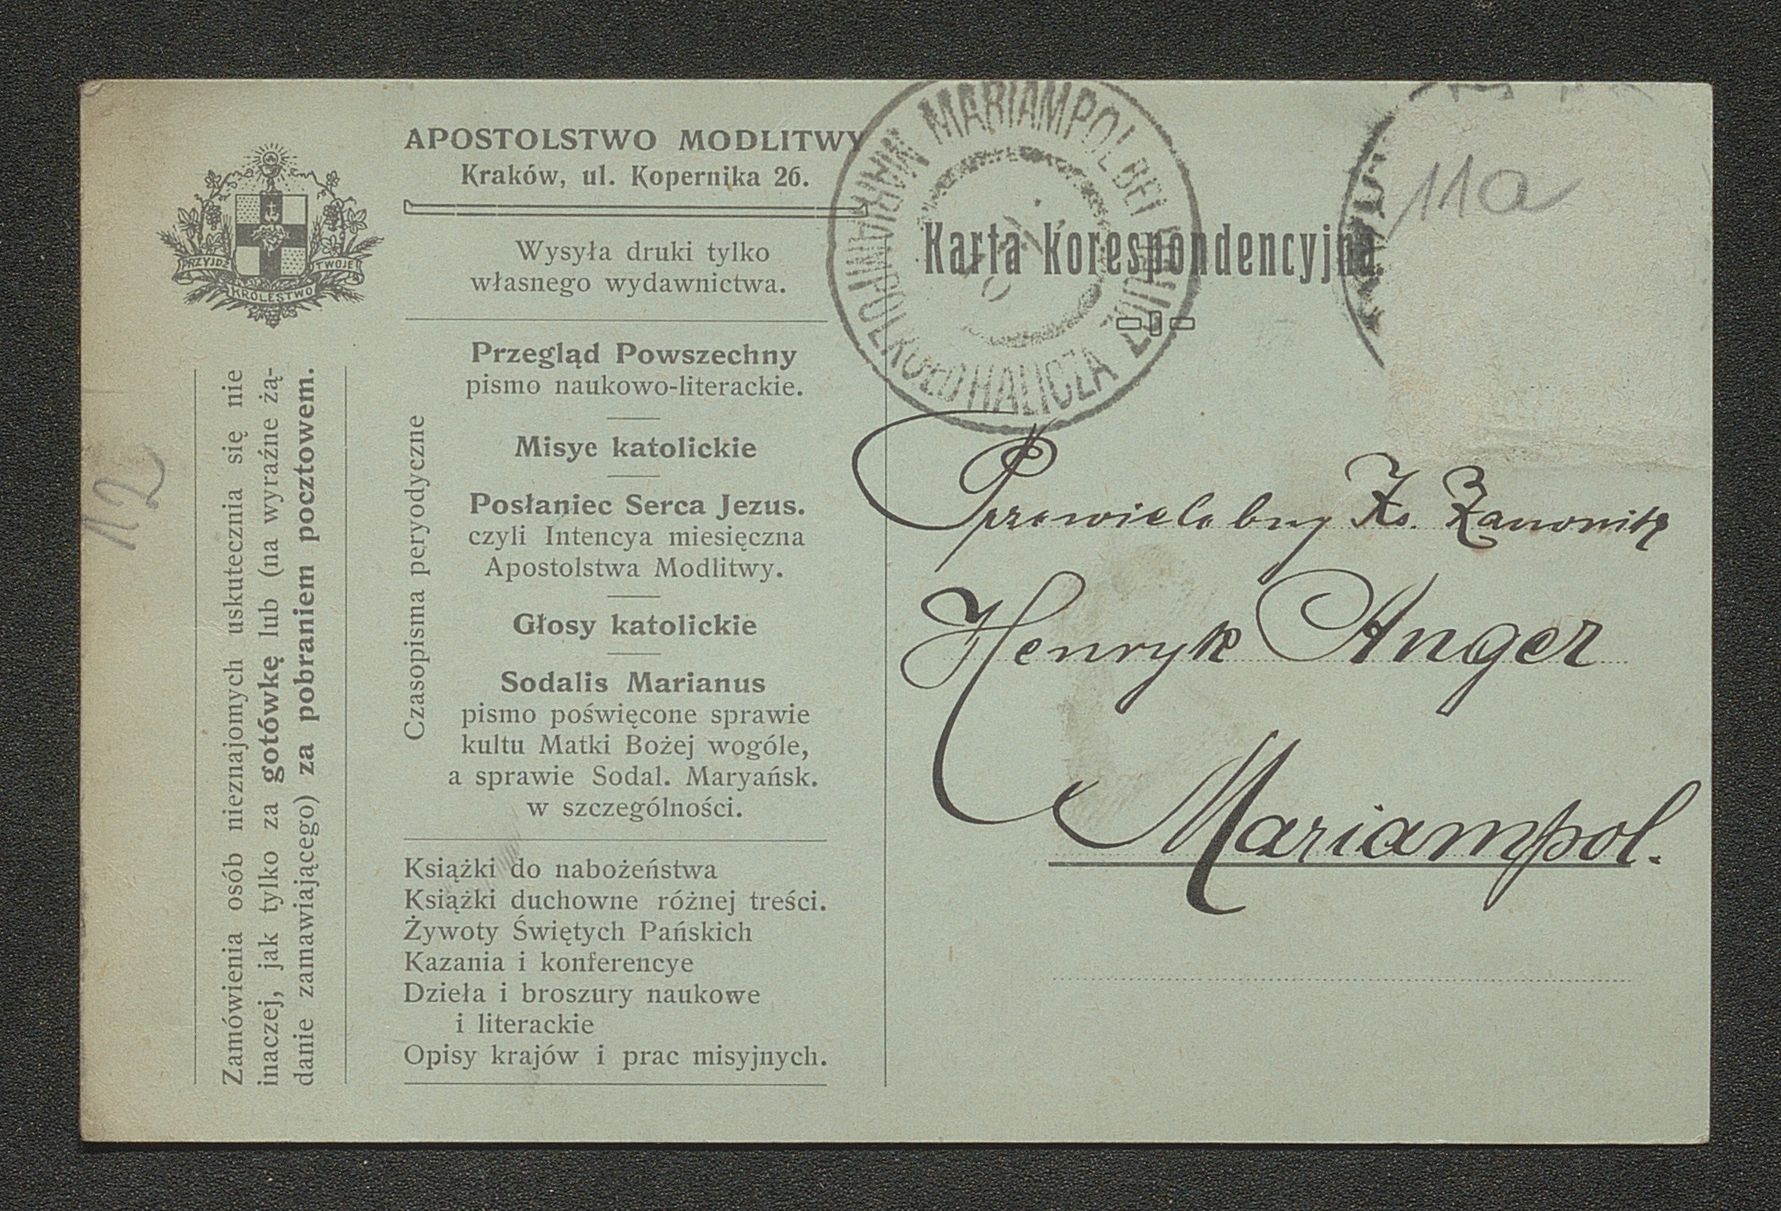 APOSTOLSTWO MODLITWY
Kraków, ul. Kopernika 26.
PRZYJDŹ KRÓLESTWO TWOJE
Wysyła druki tylko
własnego wydawnictwa.
Czasopisma peryodyczne
Przegląd Powszechny
pismo naukowo-literackie.
Misye katolickie
Posłaniec Serca Jezus.
czyli Intencya miesięczna
Apostolstwa Modlitwy.
Głosy katolickie
Sodalis Marianus
pismo poświęcone sprawie
kultu Matki Bożej wogóle,
a sprawie Sodal. Maryańsk.
w szczególności.
Książki do nabożeństwa
Książki duchowne różnej treści.
Żywoty Świętych Pańskich
Kazania i konferencye
Dzieła i broszury naukowe
i literackie
Opisy krajów i prac misyjnych.
Zamówienia osób nieznajomych uskutecznia się nie
inaczej, jak tylko za gotówkę lub (na wyraźne żą-
danie zamawiającego) za pobraniem pocztowem.
12
MARIAMPOL BEI
MARIAMPOL KOŁO HALICZA
Karta korespondencyjna.
11a
Przewielebny Ks. Kanonik
Henryk Anger
Mariampol.